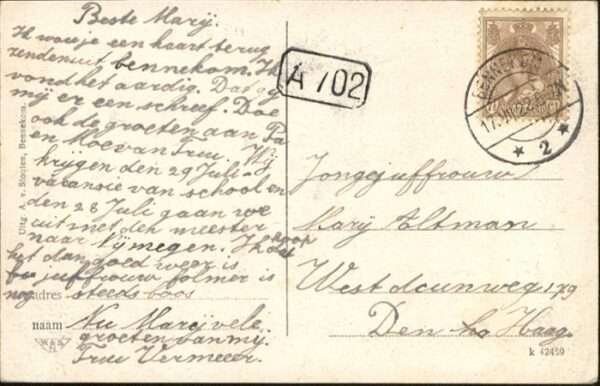 Beste Marij.
Ik wou je een kaart terug
zenden uit bennekom. Ik
vond het aardig. Dat gij
mij er een schreef. Doe
ook de groeten aan Pa
en Moe van Truu. Wij
krijgen den 29 Juli
vacansie van school en
den 28 Juli gaan we
uit met den meester
naar Nijmegen. Ik hoop dat
het dan goed weer is
juffrouw folmer is
nog steeds boos
adres
naam Nu Marij vele
groeten van mij.
Truu Vermeer.
Uitg. A. v. Stooten, Bennekom.
A 702
BENNEKOM
2
Jongejuffrouw
Marij Altman
Westduinweg 179
Den Haag.
k 42459